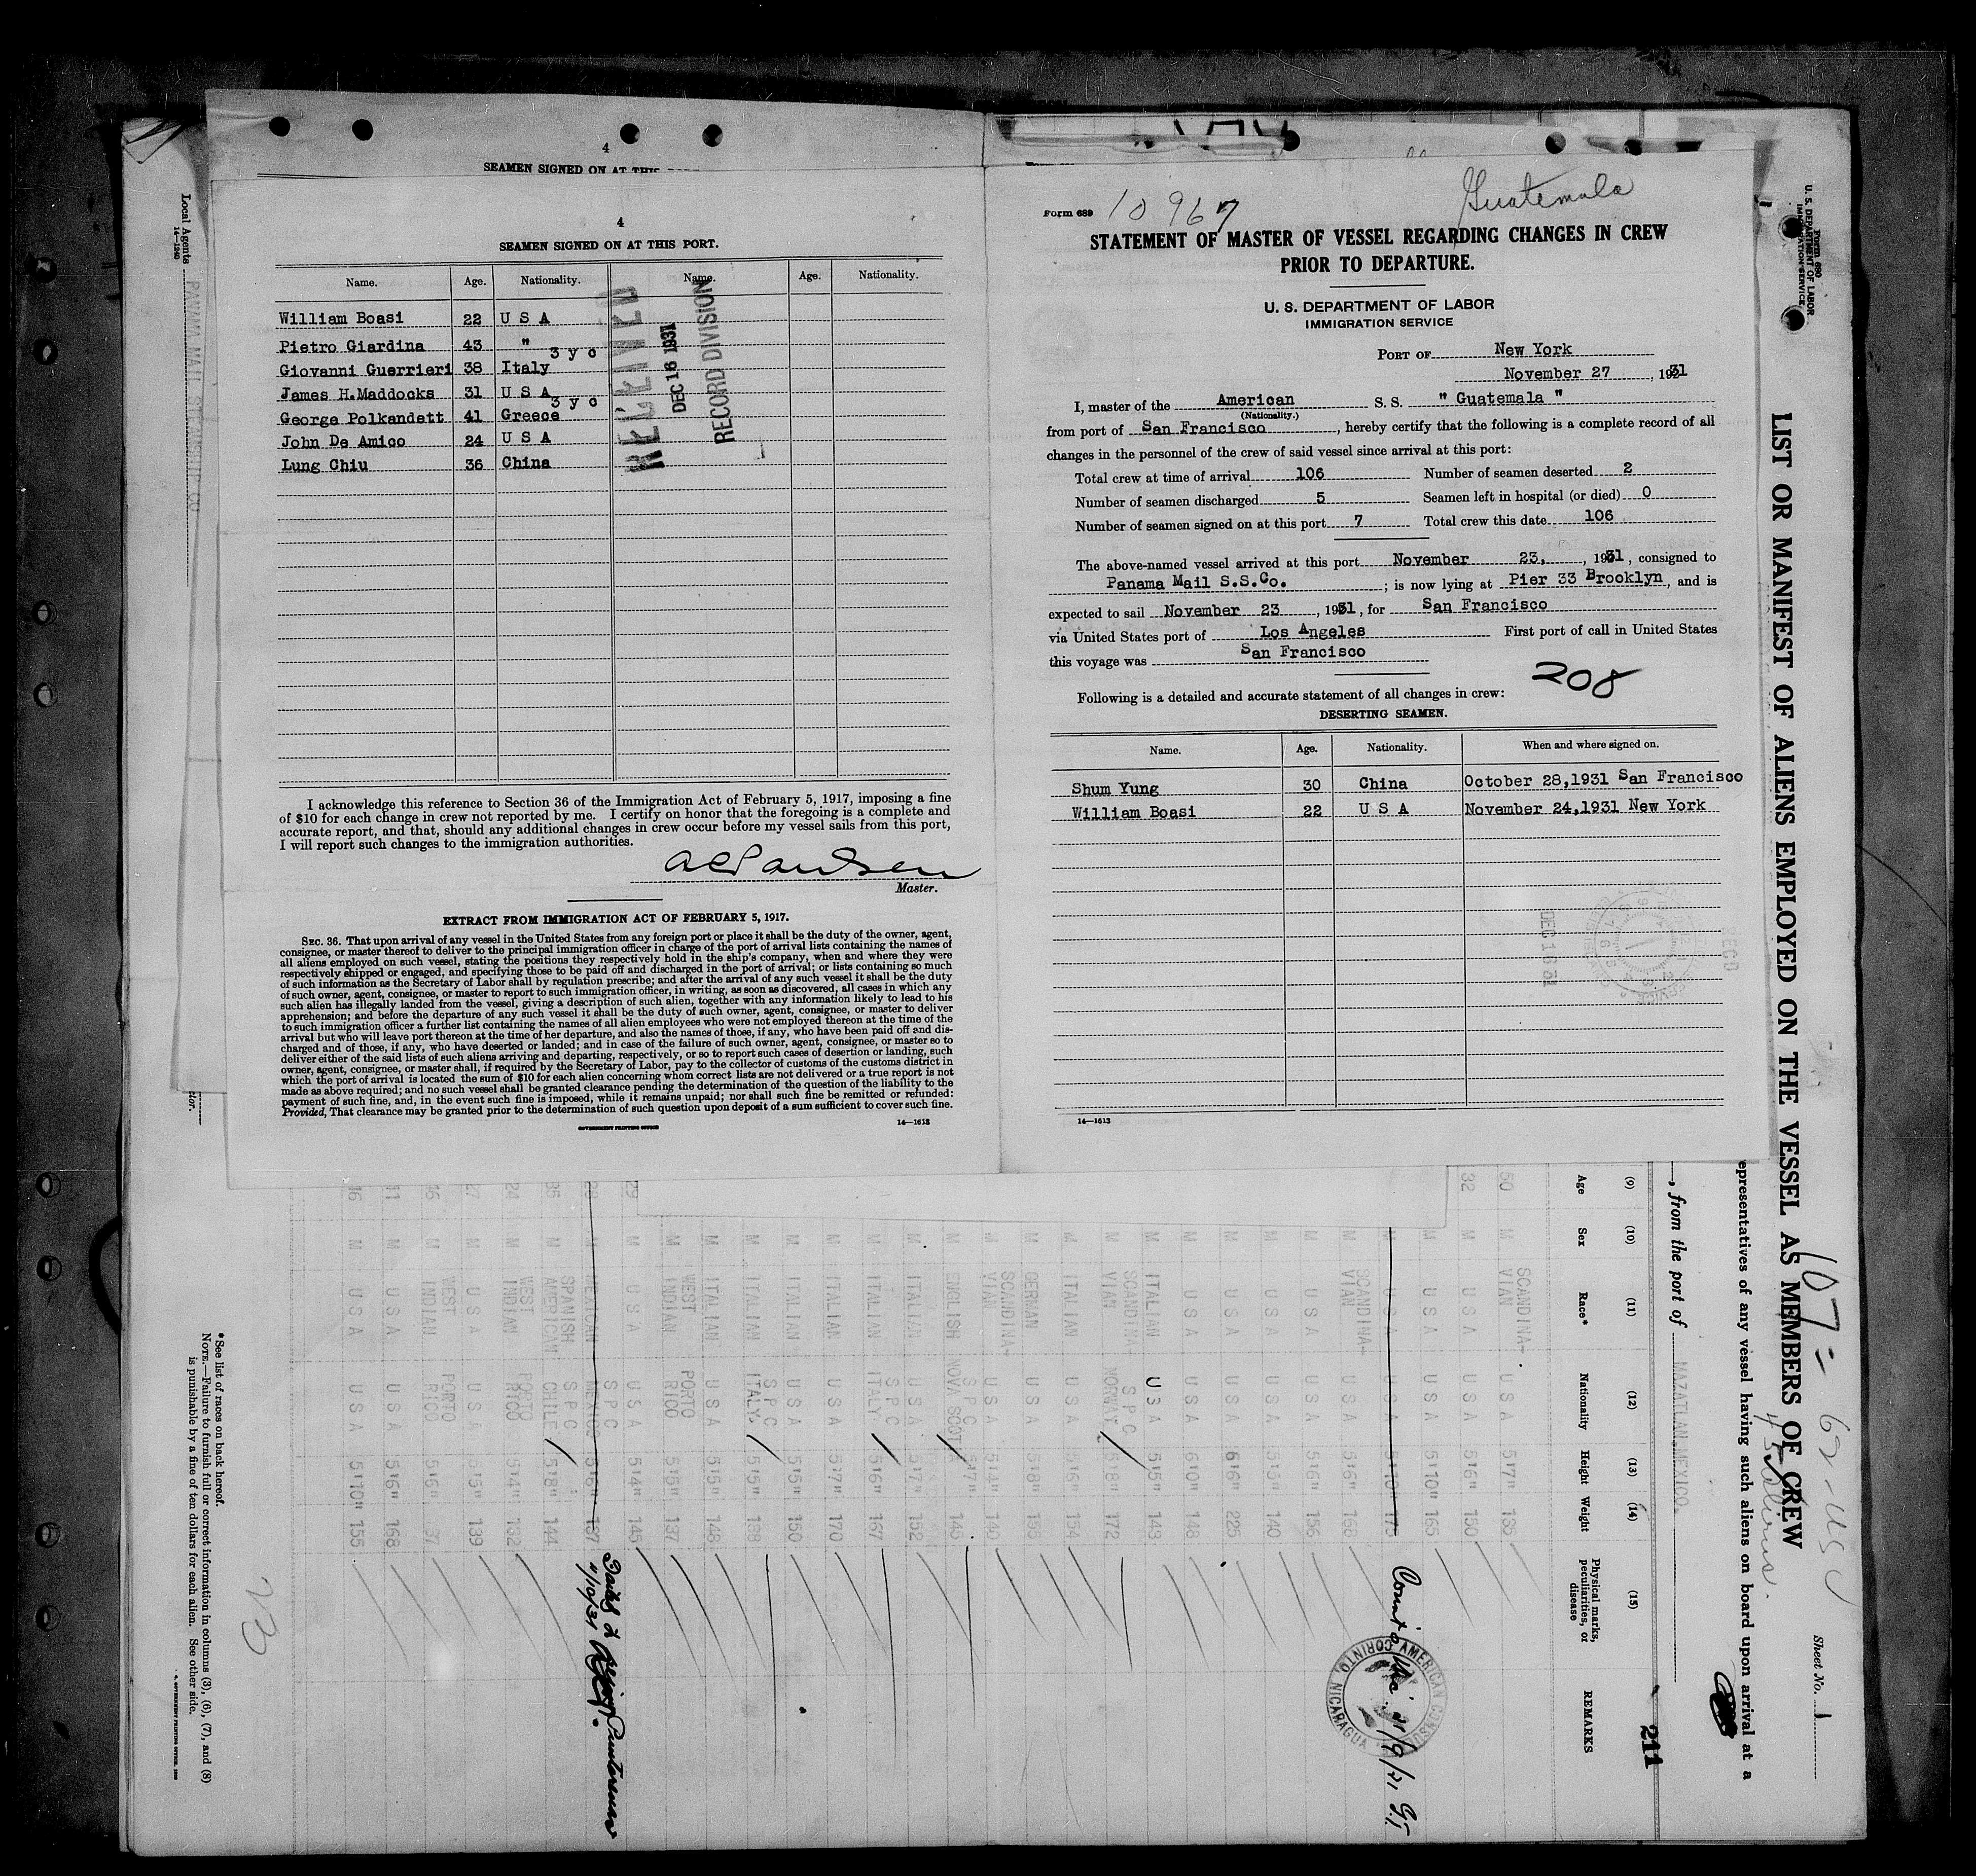 4
SEAMEN SIGNED ON AT THIS
4
SEAMEN SIGNED ON AT THIS PORT.
Name. Age. Nationality. Name. Age. Nationality.
William Boasi 22 U S A
Pietro Giardina 43 "
3 y c
Giovanni Guerrieri 38 Italy
James H.Maddocks 31 U S A
3 y c
George Polkandett 41 Greece
John De Amico 24 U S A
Lung Chiu 36 China
RECEIVED
DEC 16 1931
RECORD DIVISION
I acknowledge this reference to Section 36 of the Immigration Act of February 5, 1917, imposing a fine
of $10 for each change in crew not reported by me. I certify on honor that the foregoing is a complete and
accurate report, and that, should any additional changes in crew occur before my vessel sails from this port,
I will report such changes to the immigration authorities.
Master.
EXTRACT FROM IMMIGRATION ACT OF FEBRUARY 5, 1917.
SEC. 36. That upon arrival of any vessel in the United States from any foreign port or place it shall be the duty of the owner, agent,
consignee, or master thereof to deliver to the principal immigration officer in charge of the port of arrival lists containing the names of
all aliens employed on such vessel, stating the positions they respectively hold in the ship's company, when and where they were
respectively shipped or engaged, and specifying those to be paid off and discharged in the port of arrival; or lists containing so much
of such information as the Secretary of Labor shall by regulation prescribe; and after the arrival of any such vessel it shall be the duty
of such owner, agent, consignee, or master to report to such immigration officer, in writing, as soon as discovered, all cases in which any
such alien has illegally landed from the vessel, giving a description of such alien, together with any information likely to lead to his
apprehension; and before the departure of any such vessel it shall be the duty of such owner, agent, consignee, or master to deliver
to such immigration officer a further list containing the names of all alien employees who were not employed thereon at the time of the
arrival but who will leave port thereon at the time of her departure, and also the names of those, if any, who have been paid off and dis-
charged and of those, if any, who have deserted or landed; and in case of the failure of such owner, agent, consignee, or master so to
deliver either of the said lists of such aliens arriving and departing, respectively, or so to report such cases of desertion or landing, such
owner, agent, consignee, or master shall, if required by the Secretary of Labor, pay to the collector of customs of the customs district in
which the port of arrival is located the sum of $10 for each alien concerning whom correct lists are not delivered or a true report is not
made as above required; and no such vessel shall be granted clearance pending the determination of the question of the liability to the
payment of such fine, and, in the event such fine is imposed, while it remains unpaid; nor shall such fine be remitted or refunded:
Provided, That clearance may be granted prior to the determination of such question upon deposit of a sum sufficient to cover such fine.
GOVERNMENT PRINTING OFFICE
14—1613
Form 689 10967 Guatemala
STATEMENT OF MASTER OF VESSEL REGARDING CHANGES IN CREW
PRIOR TO DEPARTURE.
U. S. DEPARTMENT OF LABOR
IMMIGRATION SERVICE
PORT OF New York
November 27 , 1931
I, master of the American S. S. " Guatemala "
(Nationality.)
from port of San Francisco, hereby certify that the following is a complete record of all
changes in the personnel of the crew of said vessel since arrival at this port:
Total crew at time of arrival 106 Number of seamen deserted 2
Number of seamen discharged 5 Seamen left in hospital (or died) 0
Number of seamen signed on at this port 7 Total crew this date 106
The above-named vessel arrived at this port November 23, , 1931, consigned to
Panama Mail S.S.Co. ; is now lying at Pier 33 Brooklyn, and is
expected to sail November 23 , 1931, for San Francisco
via United States port of Los Angeles First port of call in United States
this voyage was San Francisco
208
Following is a detailed and accurate statement of all changes in crew:
DESERTING SEAMEN.
Name. Age. Nationality. When and where signed on.
Shum Yung 30 China October 28,1931 San Francisco
William Boasi 22 U S A November 24,1931 New York
DEC 16 31
14—1613
Form 680
U. S. DEPARTMENT OF LABOR
IMMIGRATION SERVICE
LIST OR MANIFEST OF ALIENS EMPLOYED ON THE VESSEL AS MEMBERS OF CREW
Sheet No. 1
107 = 62 - USC
epresentatives of any vessel having such aliens on board upon arrival at a
, from the port of MAZATLAN, MEXICO.
211
(9) (10) (11) (12) (13) (14) (15)
Age Sex Race* Nationality Height Weight Physical marks, peculiarities, or disease REMARKS
50 M SCANDINA-VIAN U S A 5'7"
32 M U S A U S A 5'6" 150
M U S A U S A 5'10" 165
M SCANDINA-VIAN U S A 5'6" 168
M U S A U S A 5'6" 156
M U S A 140
M U S A U S A 6'6" 225
M U S A U S A 6'0" 148
M ITALIAN U S A 5'5" 143
M SCANDINA-VIAN S P C NORWAY 5'8" 172
M ITALIAN U S A 5'6" 154
M GERMAN U S A 5'8"
M SCANDINA-VIAN U S A 5'4" 140
M ENGLISH S P C 5'7" 145
M ITALIAN U S A 5'7" 152
M ITALIAN S P C ITALY 5'6" 167
M ITALIAN U S A 5'7" 170
M ITALIAN U S A 5'5" 150
M ITALIAN S P C ITALY 5'5" 138
M ITALIAN U S A 5'5" 148
M WEST INDIAN PORTO RICO 5'5" 137
29 M U S A U S A 5'4" 145
M MEXICAN S P C MEXICO 5'6" 137
35 M SPANISH AMERICAN S P C CHILE 5'8" 144
24 M WEST INDIAN PORTO RICO 5'4" 132
M U S A U S A 139
M WEST INDIAN PORTO RICO 5'6"
M U S A U S A 5'6" 168
M U S A U S A 5'10" 155
AMERICAN CONSUL
CORINTO, NICARAGUA
*See list of races on back hereof.
NOTE.—Failure to furnish full or correct information in columns (3), (6), (7), and (8)
is punishable by a fine of ten dollars for each alien. See other side.
Local Agents PANAMA MAIL STEAMSHIP CO
14—1240